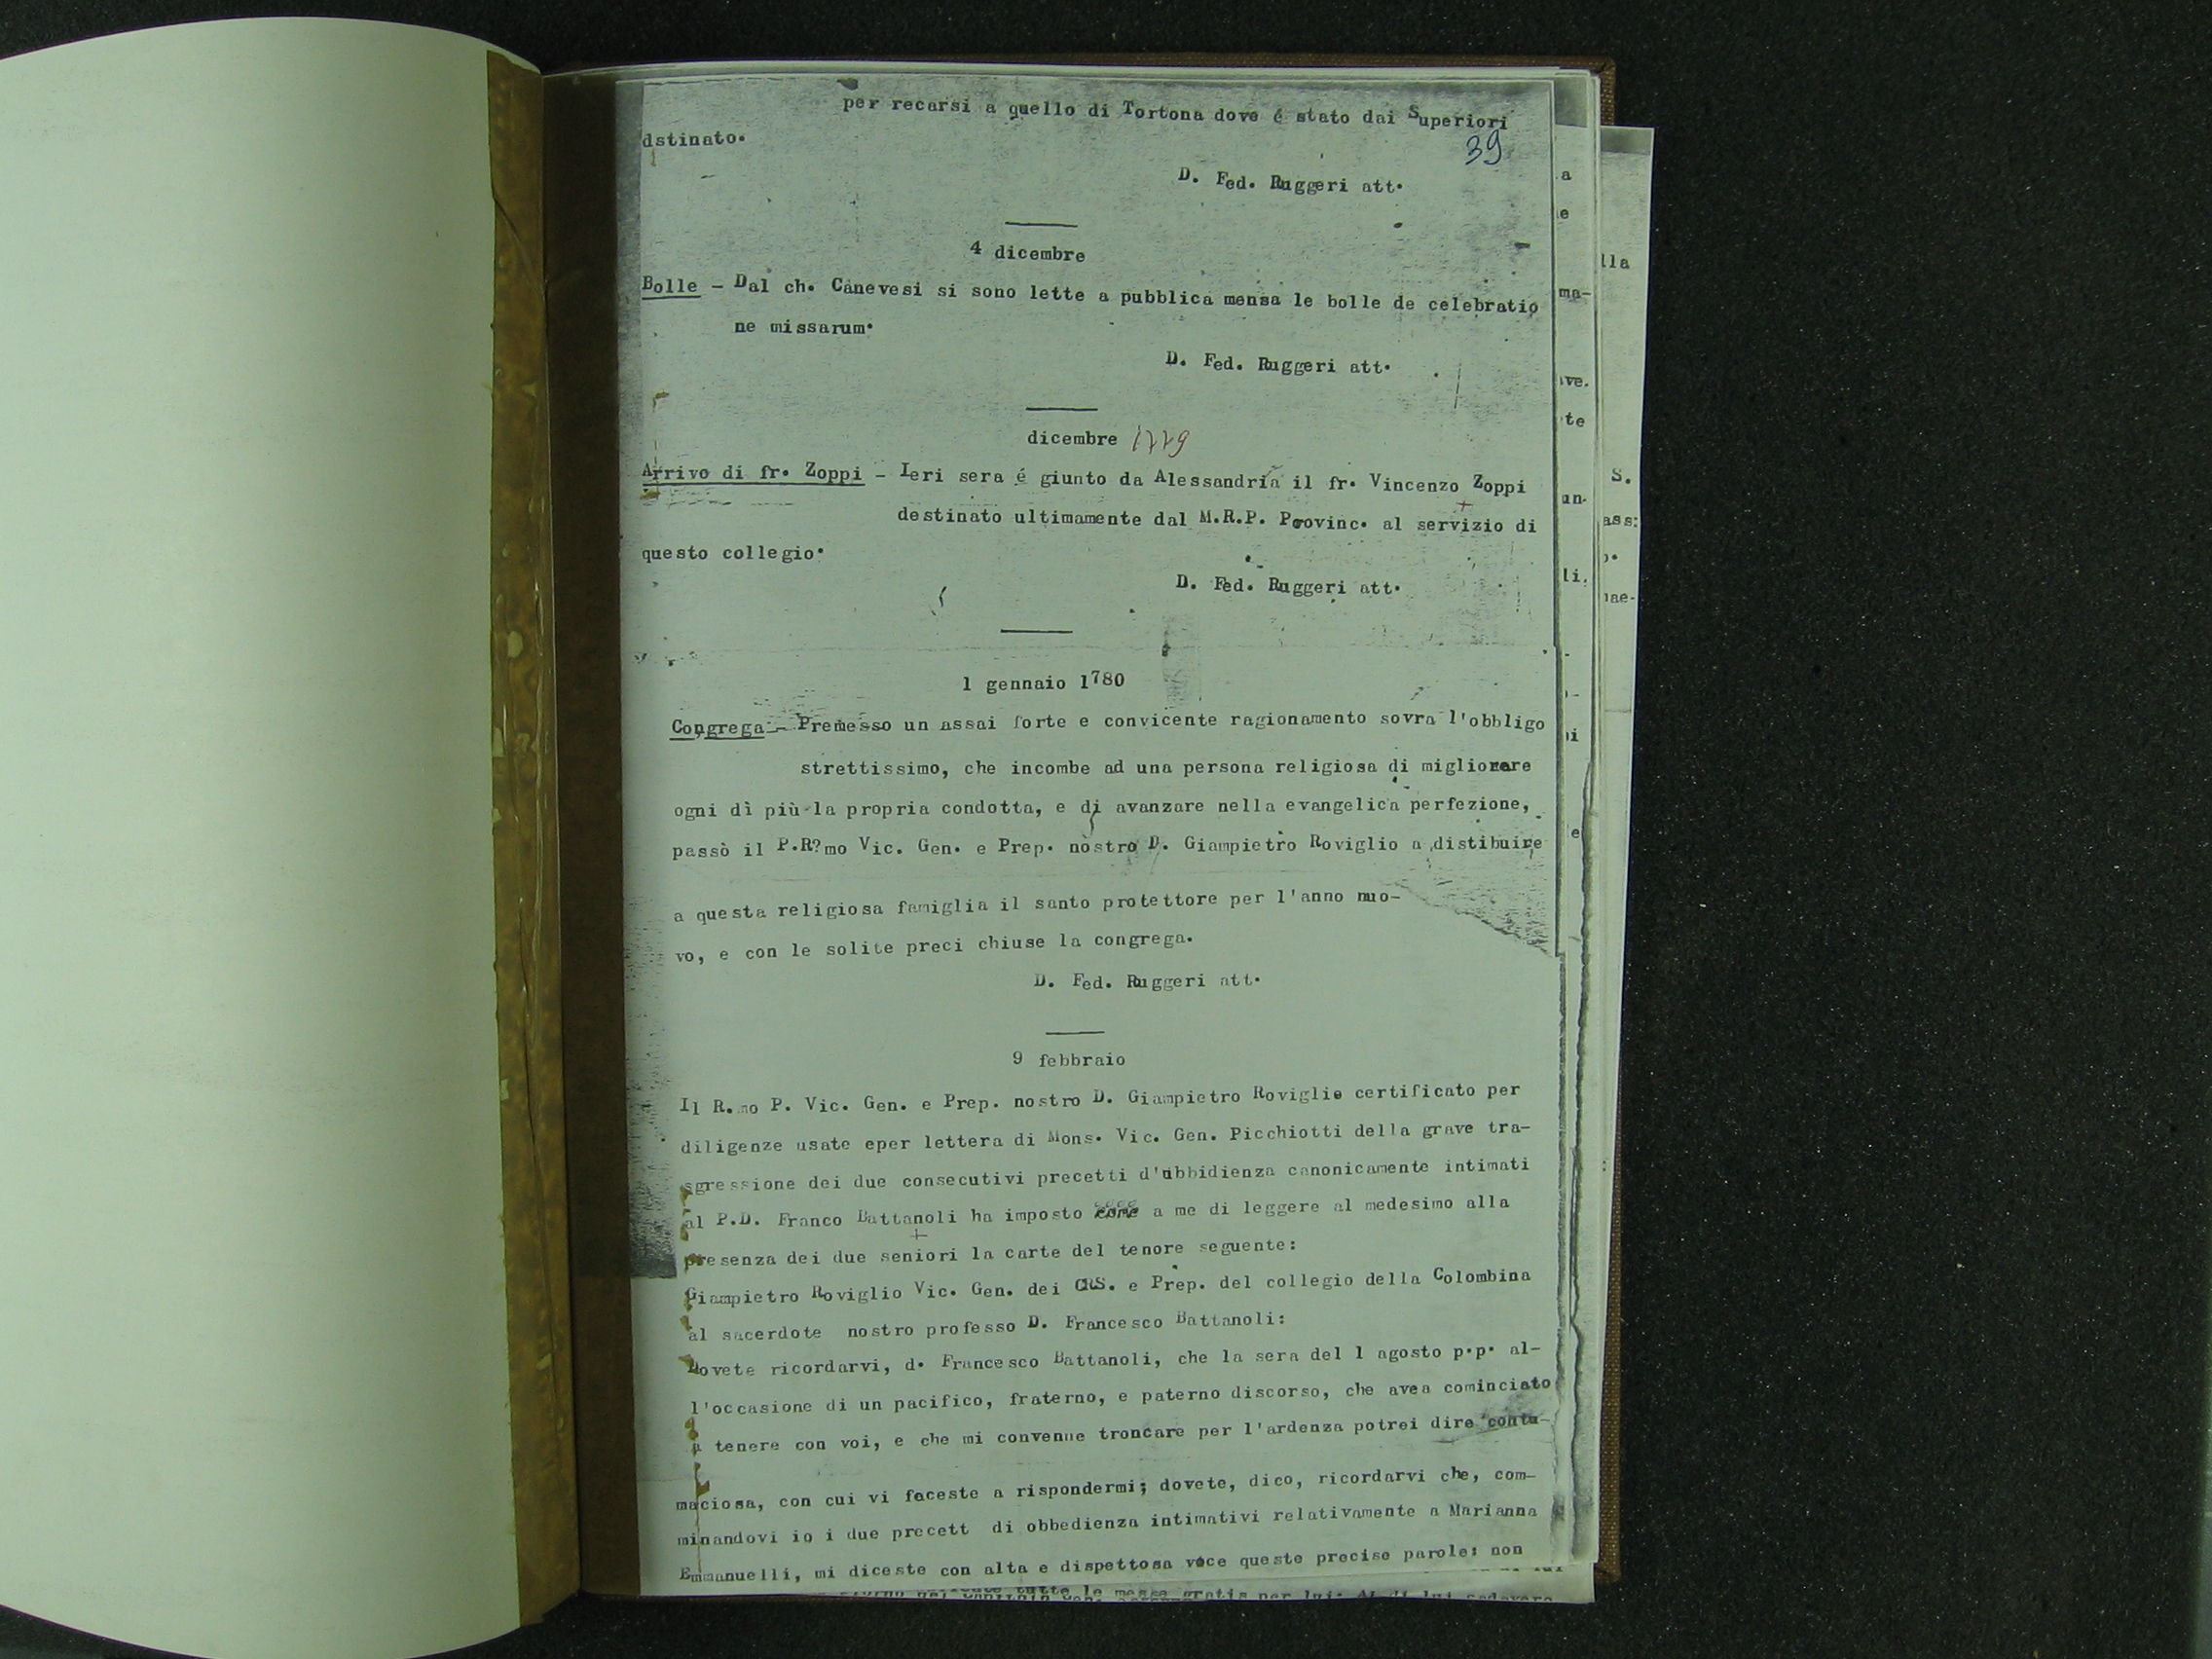 per recarsi a quello di Tortona dove é stato dai Superiori
dstinato.
39
D. Fed. Ruggeri att.
4 dicembre
Bolle - Dal ch. Canevesi si sono lette a pubblica mensa le bolle de celebratio
ne missarum.
D. Fed. Ruggeri att.
dicembre 1779
Arrivo di fr. Zoppi - Ieri sera é giunto da Alessandria il fr. Vincenzo Zoppi
destinato ultimamente dal M.R.P. Provinc. al servizio di
questo collegio.
D. Fed. Ruggeri att.
1 gennaio 1780
Congrega - Premesso un assai forte e convicente ragionamento sovra l'obbligo
strettissimo, che incombe ad una persona religiosa di migliorare
ogni dì più la propria condotta, e di avanzare nella evangelica perfezione,
passò il P.R?mo Vic. Gen. e Prep. nostro D. Giampietro Roviglio a distibuire
a questa religiosa famiglia il santo protettore per l'anno nuo-
vo, e con le solite preci chiuse la congrega.
D. Fed. Ruggeri att.
9 febbraio
Il R.mo P. Vic. Gen. e Prep. nostro D. Giampietro Roviglio certificato per
diligenze usate eper lettera di Mons. Vic. Gen. Picchiotti della grave tra-
sgressione dei due consecutivi precetti d'ubbidienza canonicamente intimati
al P.D. Franco Battanoli ha imposto come a me di leggere al medesimo alla
presenza dei due seniori la carte del tenore seguente:
Giampietro Roviglio Vic. Gen. dei CRS. e Prep. del collegio della Colombina
al sacerdote nostro professo D. Francesco Battanoli:
Dovete ricordarvi, d. Francesco Battanoli, che la sera del 1 agosto p.p. al-
l'occasione di un pacifico, fraterno, e paterno discorso, che avea cominciato
a tenere con voi, e che mi convenne troncare per l'ardenza potrei dire contu-
maciosa, con cui vi faceste a rispondermi; dovete, dico, ricordarvi che, com-
minandovi io i due precett di obbedienza intimativi relativamente a Marianna
Emmanuelli, mi diceste con alta e dispettosa voce queste precise parole: non